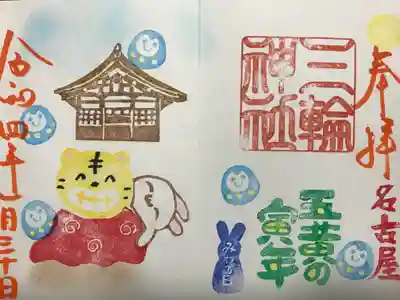 奉拝
名古屋
三輪
神社
五黄の
寅年
みわ
令和四年一月三十日